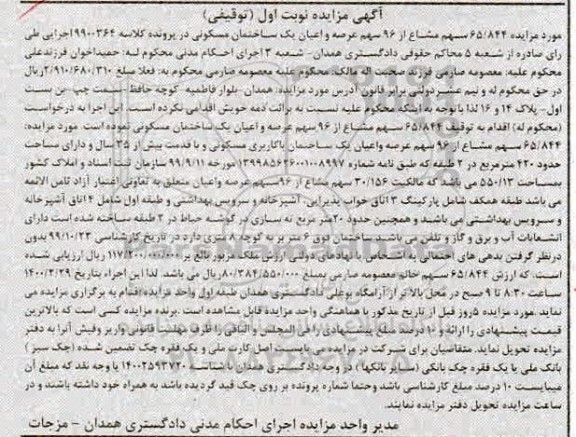 آگهی مزایده نوبت اول (توقیفی)
مورد مزایده ۶۵/۸۴۴ سهم مشاع از ۹۶ سهم عرصه و اعیان یک ساختمان مسکونی در پرونده کلاسه ۹۹۰۰۳۶۴ اجرایی طی
رای صادره از شعبه ۵ محاکم حقوقی دادگستری همدان- شعبه ۳ اجرای احکام مدنی محکوم له: حمیداخوان فرزندعلی
محکوم علیه: معصومه صارمی فرزند صحبت اله مالکیت محکوم علیه معصومه صارمی محکوم به: فعلا مبلغ ۲/۹۱۰/۶۸۰/۳۱۰ ریال
در حق محکوم له و نیم عشردولتی برابر قانون آدرس مورد مزایده: همدان- بلوار فاطمیه- کوچه حافظ- سمت چپ- بن بست
اول- پلاک ۱۴ و ۱۶ لذا باتوجه به اینکه محکوم علیه نسبت به برائت ذمه خویش اقدامی نکرده است. این اجرا به درخواست
(محکوم له) اقدام به توقیف ۶۵/۸۴۴ سهم مشاع از ۹۶ سهم عرصه و اعیان یک ساختمان مسکونی نموده است. مورد مزایده:
۶۵/۸۴۴ سهم مشاع از ۹۶ سهم عرصه واعیان یک ساختمان باکاربری مسکونی و با قدمت بیش از ۳۵ سال و دارای مساحت
حدود ۴۲۰ مترمربع در ۲ طبقه که طبق نامه شماره ۱۳۹۹۸۵۶۳۶۰۰۱۰۰۸۹۹۷ مورخه ۹۹/۹/۱۱ سازمان ثبت اسناد و املاک کشور
بمساحت ۵۵۰/۱۳ می باشد که مالکیت ۳۰/۱۵۶ سهم مشاع از ۹۶سهم عرصه واعیان متعلق به تعاونی اعتبار آزاد ثامن الائمه
می باشد طبقه همکف شامل پارکینگ ۳ اتاق خواب پذیرایی، آشپزخانه و سرویس بهداشتی و طبقه اول شامل ۴ اتاق آشپزخانه
و سرویس بهداشتی می باشند و همچنین حدود ۲۰متر مربع نه سازی در گوشه حیاط در ۲ طبقه ساخته شده است دارای
انشعابات آب و برق و گاز و تلفن می باشد ساختمان فوق ۶ متر بر به کوچه ۸ متری دارد در تاریخ کارشناسی ۹۹/۱۰/۲۳ بدون
درنظر گرفتن بدهی های احتمالی به اشخاص یا نهادهای دولتی ارزش ملک مزبور بالغ بر ۱۱۷/۲۰۰/۰۰۰/۰۰۰ ریال ارزیابی شده
است، که ارزش ۶۵/۸۴۴ سهم خانم معصومه صارمی بمبلغ ۸۰/۳۸۴/۵۵۰/۰۰۰ ریال می باشد. لذا این اجراء بتاریخ ۱۴۰۰/۲/۲۹
ساعت ۸:۳۰ تا ۹ صبح در محل بالاتر از آرامگاه بوعلی دادگستری همدان طبقه اول واحد مزایده اقدام به برگزاری مزایده می
نماید .مورد مزایده ۵روز قبل از تاریخ مذکور با هماهنگی واحد مزایده قابل مشاهده است .برنده مزایده کسی است که بالاترین
قیمت پیشنهادی را ارائه و ۱۰ درصد مبلغ پیشنهادی را فی المجلس و الباقی را ظرف مهلت قانونی واریز وفیش آنرا به دفتر
مزایده تحویل نماید. متقاضیان برای شرکت در مزایده می بایست اصل کارت ملی و یک فقره چک تضمین شده (چک سبز )
بانک ملی یا یک فقره چک بانکی (سایر بانکها) در وجه دادگستری همدان باشناسه ۱۴۰۰۲۵۹۳۷۲۰ یا وجه نقد که مبلغ آن
میبایست ۱۰ درصد مبلغ کارشناسی باشد وحتما شماره پرونده بر روی چک قید گردیده باشد به همراه خود داشته باشند و در
ساعت مزایده تحویل دفتر مزایده نمایند.
مدیر واحد مزایده اجرای احکام مدنی دادگستری همدان - مزجات